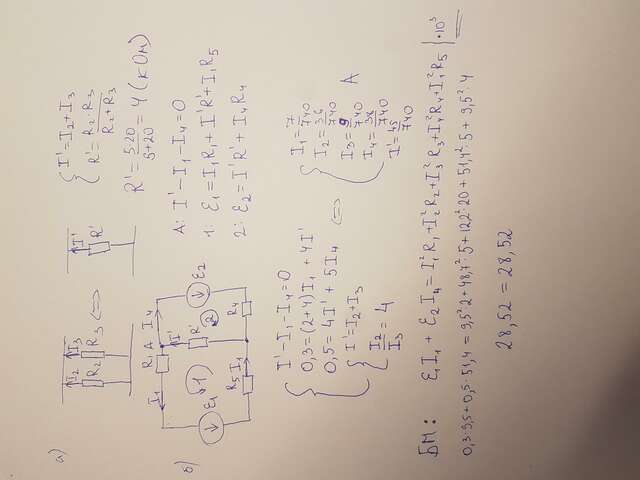 а)
I₂ R₂ I₃ R₃ ⇔ I' R'
{ I' = I₂ + I₃
R' = R₂·R₃ / R₂+R₃
R' = 5·20 / 5+20 = 4 (кОм)
б)
I₁ R₁ A I₄
ε₁ 1 I' R' 2 ε₂
R₅ I₁ R₄
A: I' - I₁ - I₄ = 0
1: ε₁ = I₁R₁ + I'R' + I₁R₅
2: ε₂ = I'R' + I₄R₄
{ I' - I₁ - I₄ = 0
0,3 = (2+4)I₁ + 4I'
0,5 = 4I' + 5I₄
{ I' = I₂ + I₃
I₂/I₃ = 4
⇔
{ I₁ = 7/740
I₂ = 36/740
I₃ = 9/740 A
I₄ = 38/740
I' = 45/740
БМ: ε₁I₁ + ε₂I₄ = I₁²R₁ + I₂²R₂ + I₃²R₃ + I₄²R₄ + I₁²R₅ | ·10³
0,3·9,5 + 0,5·51,4 = 9,5²·2 + 48,7²·5 + 12,2²·20 + 51,4²·5 + 9,5²·4
28,52 = 28,52